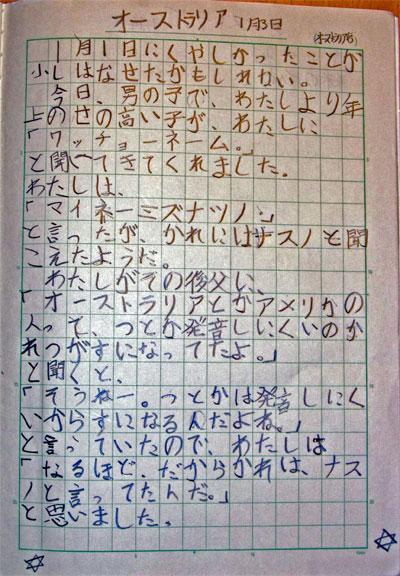 オーストラリア 1月3日
1月1日にくやしかったことが
少しはなせたかもしれない。
今日、男の子で、わたしより年
上のせの高い子が、わたしに
「ワッチョーネーム。」
と聞いてきてくれました。
わたしは、
「マイネーミズナツノ。」
と言ったが、かれにはナスノと聞
こえたようだ。
わたしがその後父い、
「オーストラリアとかアメリカの
人って、つとか発音しにくいのか
れつがすになってたよ。」
と聞くと、
「そうねー。っとかは発音しにく
いからすになるんだよね。」
と言っていたので、わたしは
「なるほど、だからかれは、ナス
ノと言ってたんだ。」
と思いました。